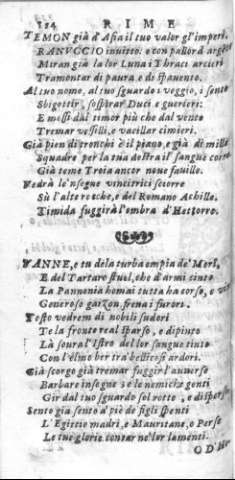 154 RIME
TEMON già d'Asia il tuo valor gl'imperi
RANUCCIO inuitto, e con pallor d'argento
Miran già la lor Luna i Thraci arcieri
Tramontar di paura, e di spauento.
Al tuo nome, al tuo sguardo i veggio, i sento
Sbigottir, sospirar Duci e guerieri:
E mossi dal timor più che dal vento
Tremar vessilli, e vacillar cimieri.
Già pien di tronchi è il piano, e già di mille
Squadre per la tua destra il sangue corre
Già teme Troia ancor noue fauille.
Vedrà le'nsegne vincitrici scorre
Sù l'alte rocche, e del Romano Achille
Timida fuggirà l'ombra d'Hettorre.
VANNE, e tu de la turba empia de'
E del Tartaro stuol, che d'armi cinto
La Pannonia homai tutta ha corso, e
Generoso garzon frena i furori.
Tosto vedrem di nobili sudori
Te la fronte real sparso, e dipinto
Là soura l'Istro del lor sangue tinto
Con l'elmo ber tra bellicosi ardori.
Già scorgo già tremar fuggir l'auuerse
Barbare insegne e le nemiche genti
Gir dal tuo sguardo sol rotte, e disperse
Sento già sento a piè de figli spenti
L'Egittie madri, e Mauritane, o Perse
Le tue glorie contar ne'lor lamenti.